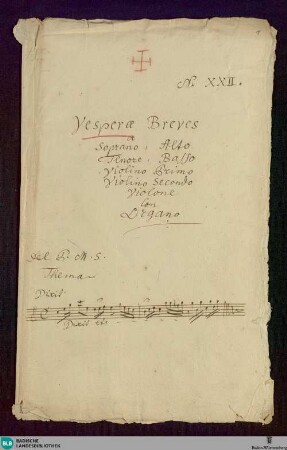 N. XXII.
Vesperæ Breves
a
Soprano, Alto
Tenore, Basso
Violino Primo
Violino Secondo
Violone
Con
Organo
Del P. M. S.
Thema
Dixit
Dixit
BLB BADISCHE
LANDESBIBLIOTHEK
Baden-Württemberg